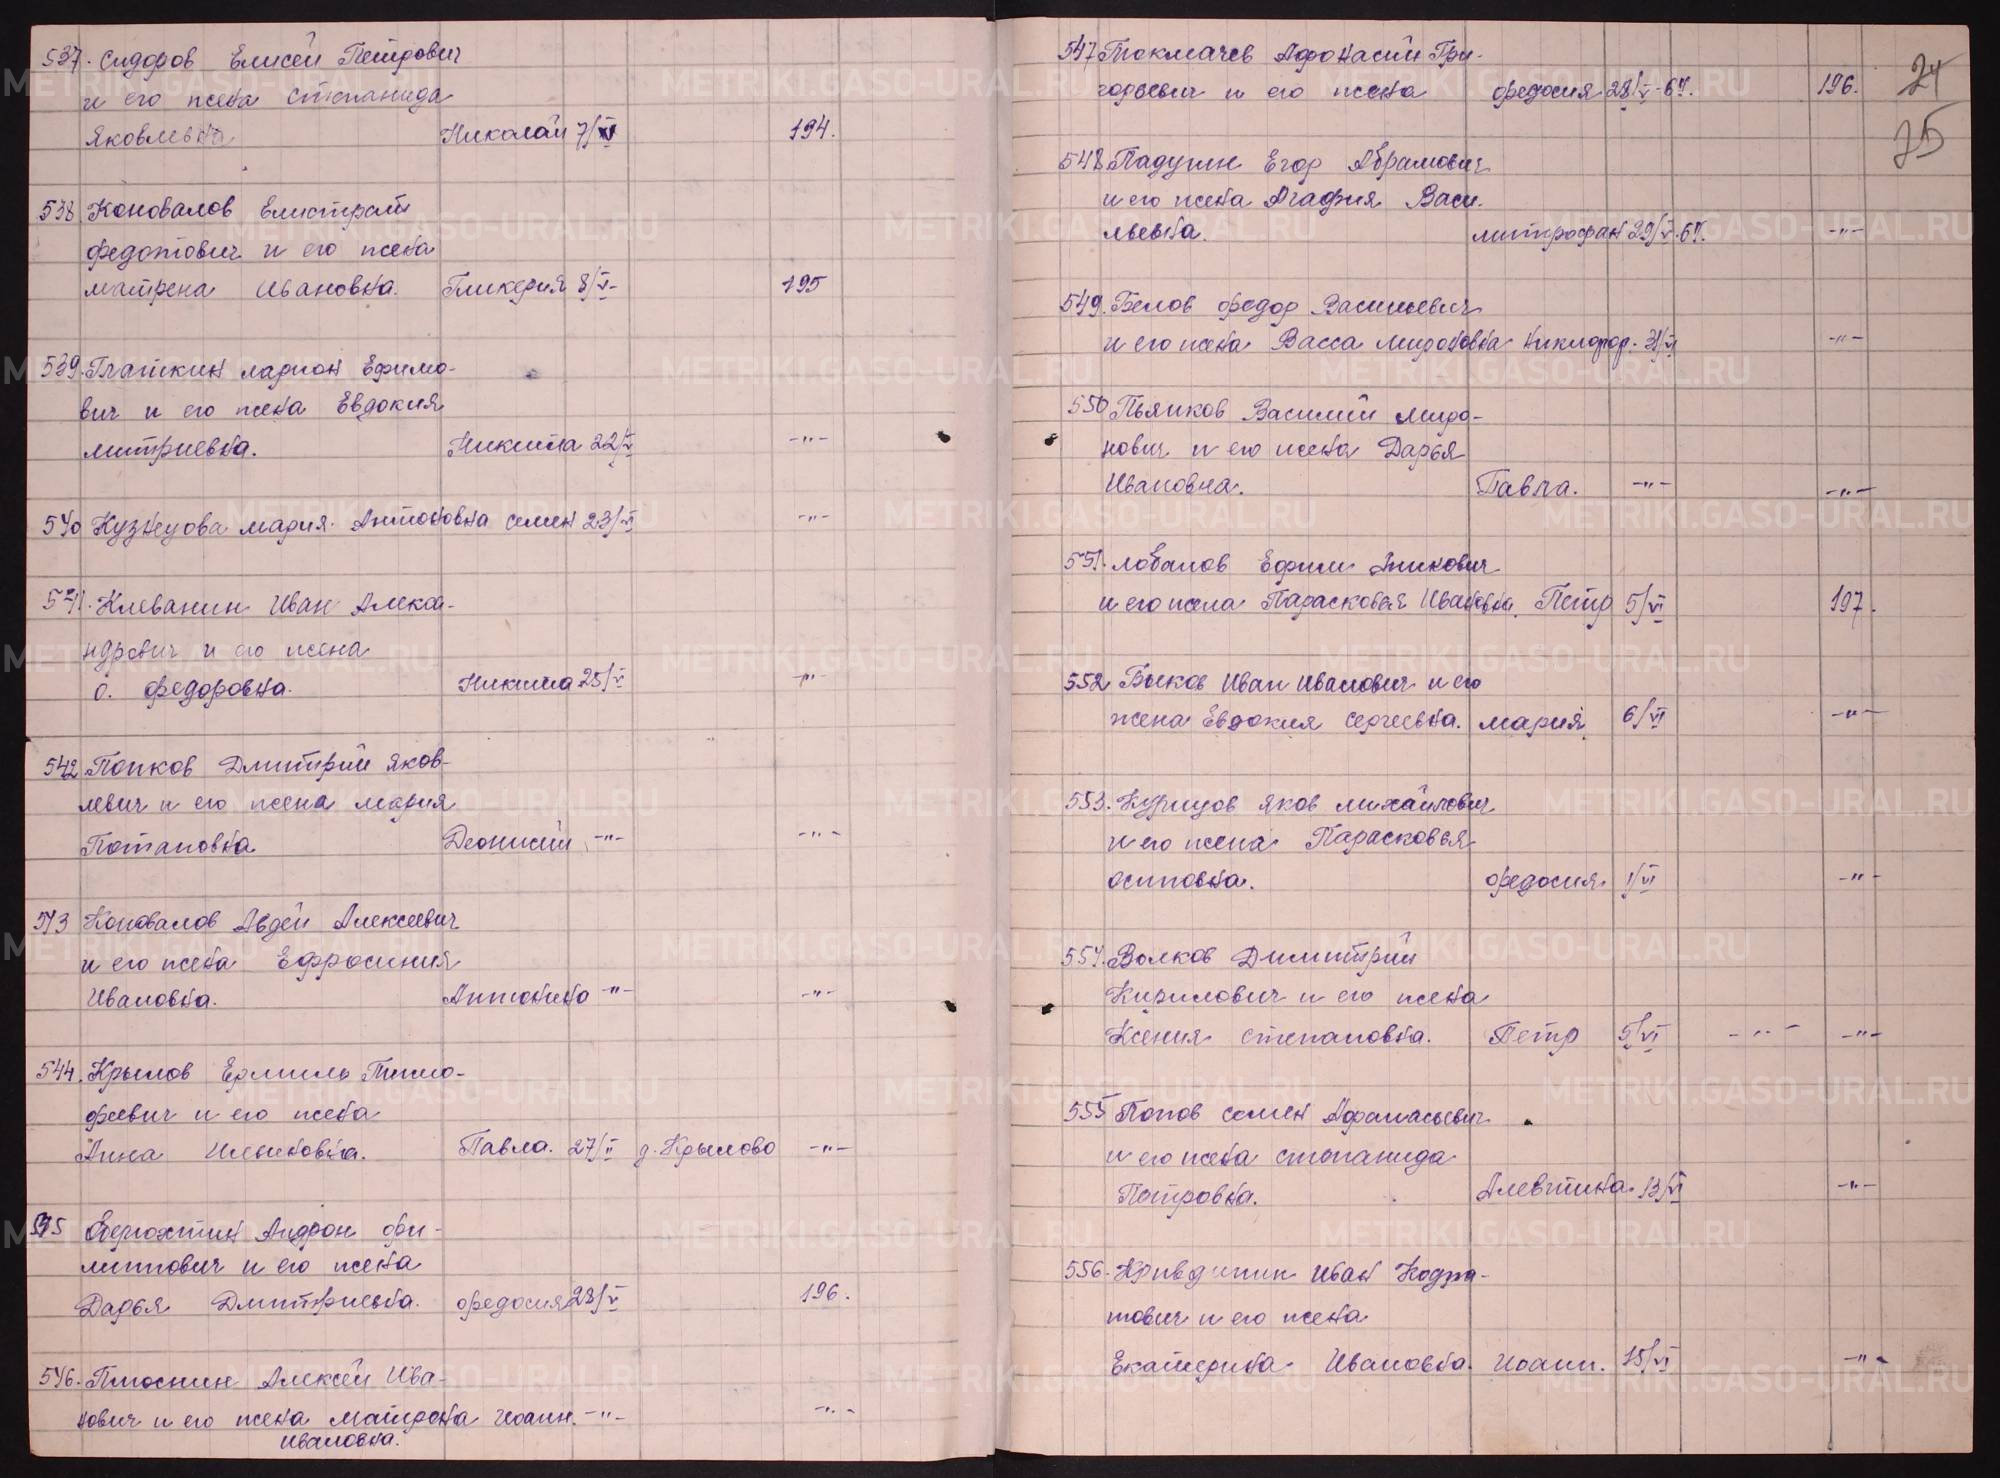 537. Сидоров Елисей Петрович
и его жена Степанида
Яковлевна Николай 7/V 194.
538 Коновалов Елистрат
Федотович и его жена
Матрена Ивановна. Гликерия 8/V- 195
539. Глаткин Ларион Ефимо-
вич и его жена Евдокия
митриевна. Никита 22/V -"-
540 Кузнецова Мария. Антоновна Семен 23/VI -"-
541. Клеванин Иван Алекса-
ндрович и его жена
О. Федоровна. Никита 25/V -"-
542 Попков Дмитрий Яков-
левич и его жена Мария
Потаповна Деонисий -"- -"-
543 Коновалов Авдей Алексеевич
и его жена Ефросиния
Ивановна. Антонина -"- -"-
544. Крылов Ермиль Тимо-
феевич и его жена
Анна Ивановна. Павла. 27/II д. Крылово -"-
545 Андрон Фи-
липпович и его жена
Дарья Дмитриевна. Федосия 28/V 196.
546. Алексей Ива-
нович и его жена Матрена Иоанн. -"- -"-
Ивановна.
24
25
547 Токмачев Афонасий Гри-
горьевич и его жена Федосия 28/V-67. 196.
548 Падугин Егор Абрамович
и его жена Агафия Васи-
льевна. Митрофан 29/V.67. -"-
549. Белов Федор Васильевич
и его жена Васса Мироновна Никифор. 31/VI -"-
550 Пьянков Василий Миро-
нович и его жена Дарья
Ивановна. Павла. -"- -"-
551. Лобанов Ефим
и его жена Парасковья Ивановна. Петр 5/VI 197.
552 Быков Иван Иванович и его
жена Евдокия Сергеевна. Мария 6/VI -"-
553. Курицов Яков Михайлович
и его жена Парасковья
Осиповна. Федосия. 1/VI -"-
554. Волков Димитрий
Кирилович и его жена
Ксения Степановна. Петр 5/VI -"- -"-
555 Попов Семен Афанасьевич
и его жена Степанида
Петровна. Алевтина. 13/VI -"-
556. Иван Кодра-
тович и его жена
Екатерина Ивановна. Иоанн. 15/VI -"-
METRIKI.GASO-URAL.RU